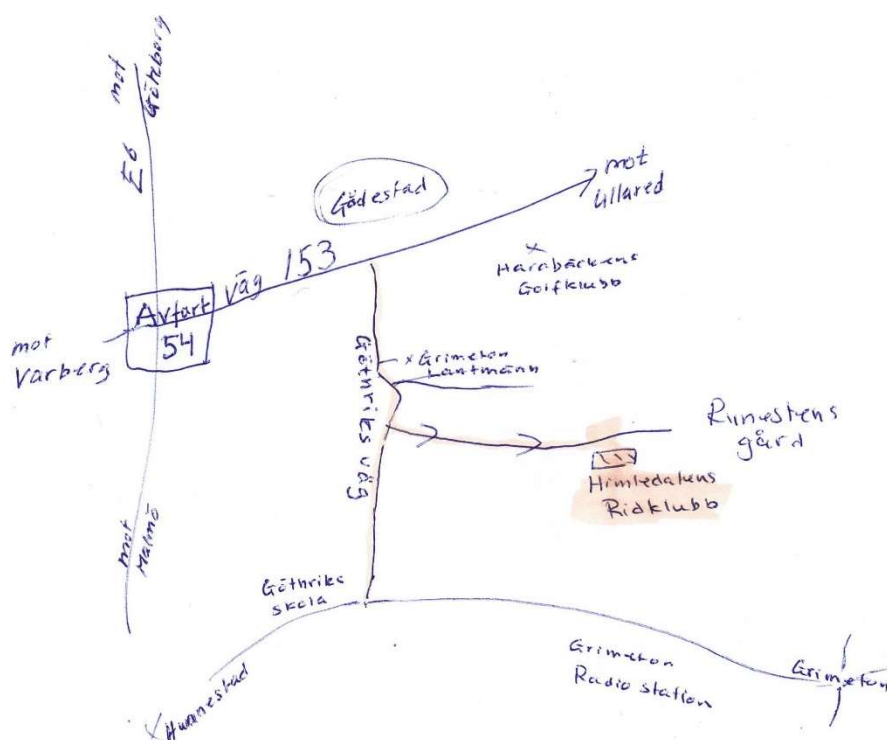 mot
Göteborg
E6
Gödestad
mot
Ullared
Väg 153
Avfart
54
mot
Varberg
Harabäckens
Golfklubb
x Grimeton
Lantmänn
Göthriks väg
Runestens
gård
Himledalens
Ridklubb
mot
Malmö
Göthriks
skola
Grimeton
Radio station
Grimeton
x Hunnestad